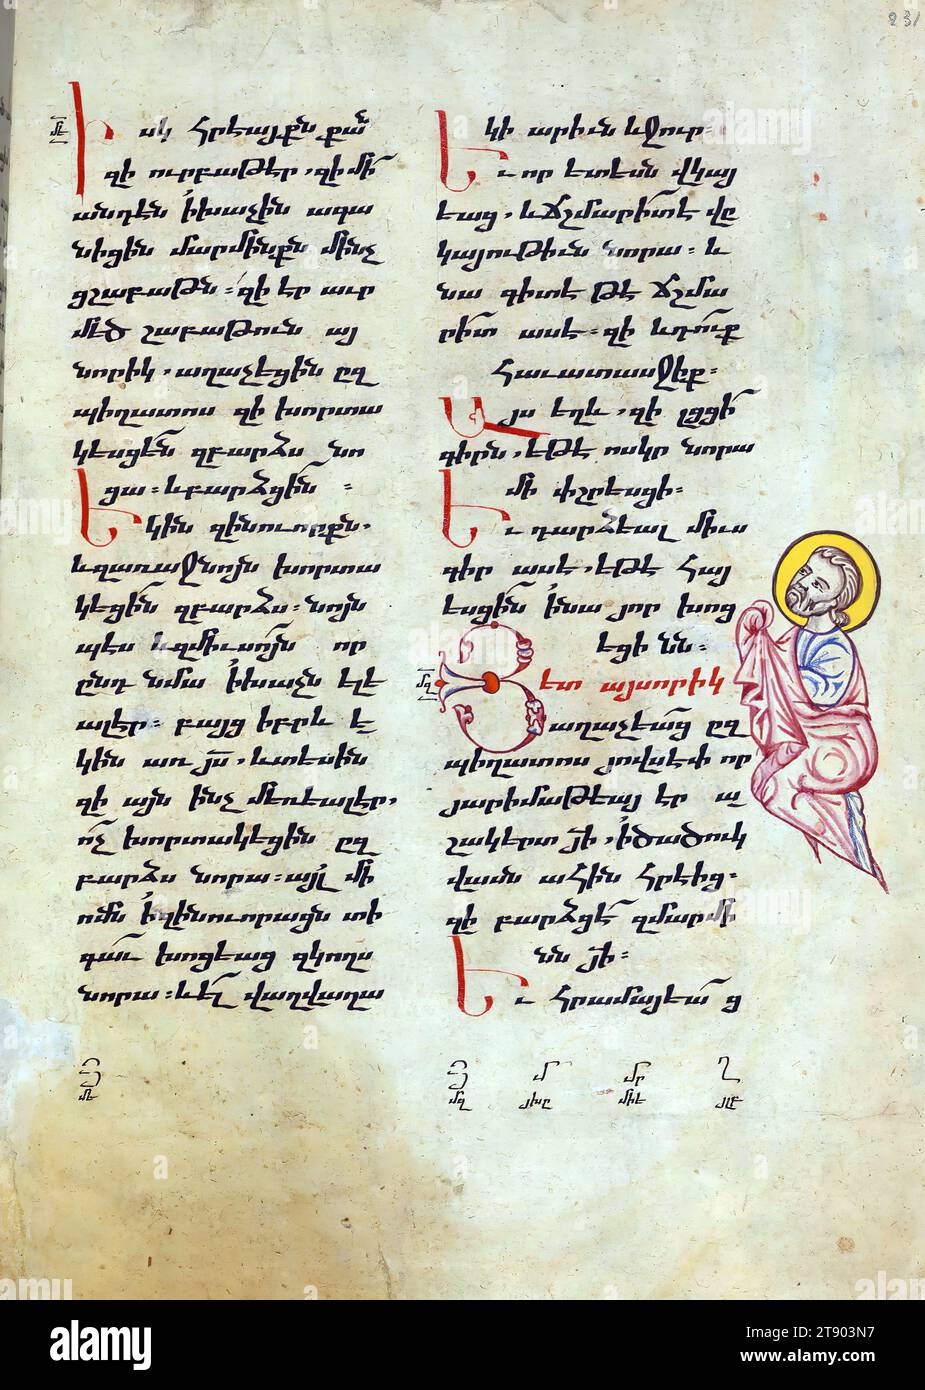 231
մե
Իսկ հրէայքն քան
զի ուրբաթ էր, զի մի
անդէն ի խաչին ագա
նիցին մարմինքն մինչ
ցշաբաթն. զի էր աւր
մեծ շաբաթուն այ
նորիկ. աղաչեցին ըզ
պիղատոս զի խորտա
կեսցեն զբարձս նո
ցա. և բարձցին.
Եկին զինուորքն.
և զառաջնոյն խորտա
կեցին զբարձս. նոյն
պէս և զմիւսոյն որ
ընդ նմա ի խաչն ելե
ալ էր. բայց իբրև ե
կին առ յս, և տեսին
զի այն ինչ մեռեալ էր,
ոչ խորտակեցին ըզ
բարձս նորա. այլ մի
ոմն ի զինուորացն տի
գաւ խոցեաց զկողս
նորա. և ել վաղվաղա
մե
կի արիւն և ջուր.
Եւ որ ետեսն վկայ
եաց, և ճշմարիտ է վը
կայութիւն նորա. և
նա գիտէ թէ ճշմա
րիտ ասէ. զի և դուք
հաւատասջիք.
Այս եղև, զի լցցի
գիրն, եթէ ոսկր նորա
մի փշրեսցի.
Եւ դարձեալ միւս
գիր ասէ, եթէ հայ
եսցին ի նա յոր խոց
եցինն.
մզ
Յետ այսորիկ
աղաչեաց ըզ
պիղատոս յովսէփ որ
յարիմաթեայ էր ա
շակերտ յի, ի ծածուկ
վասն ահին հրէից.
զի բարձցէ զմարմի
նն յի.
Եւ հրամայեաց
մզ
alamy
Image ID: 2T903N7
www.alamy.com